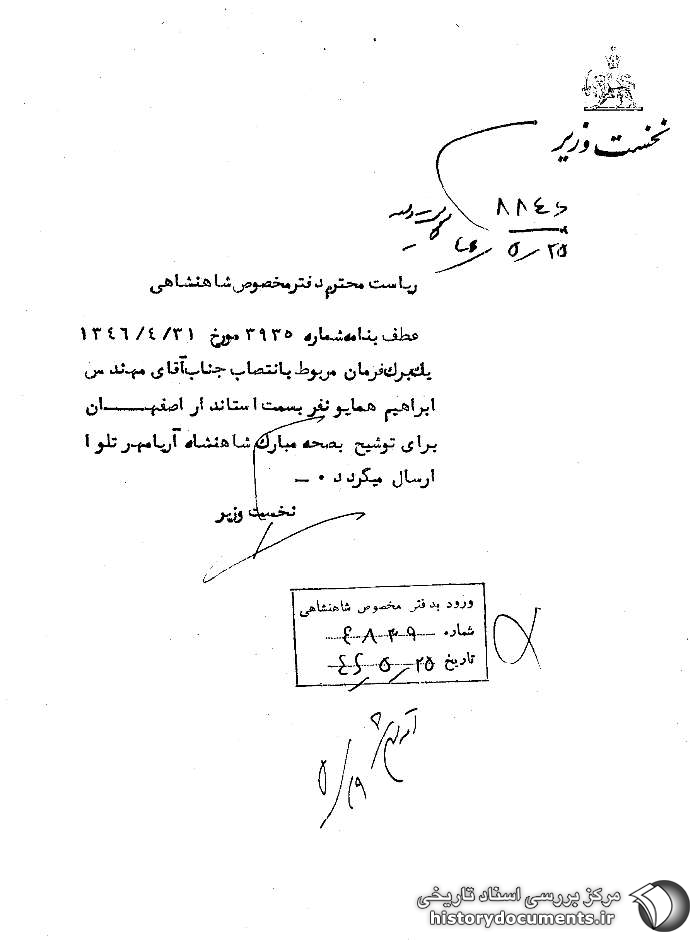 نخست وزیر
۸۸٤۶
۵/۲۵
ریاست محترم دفتر مخصوص شاهنشاهی
عطف بنامه شماره ۳۹۳۵ مورخ ۱۳٤٦/٤/۳۱
یک برگ فرمان مربوط بانتصاب جناب آقای مهندس
ابراهیم همایونفر بسمت استاندار اصفهـــان
برای توشیح بصحه مبارک شاهنشاه آریامهر تلوا
ارسال میگردد ۰ ـ
نخست وزیر
ورود بدفتر مخصوص شاهنشاهی
شماره ٤۸۳۹
تاریخ ٤۶/۵/۲۵
۵/۲۹
مرکز بررسی اسناد تاریخی
historydocuments.ir